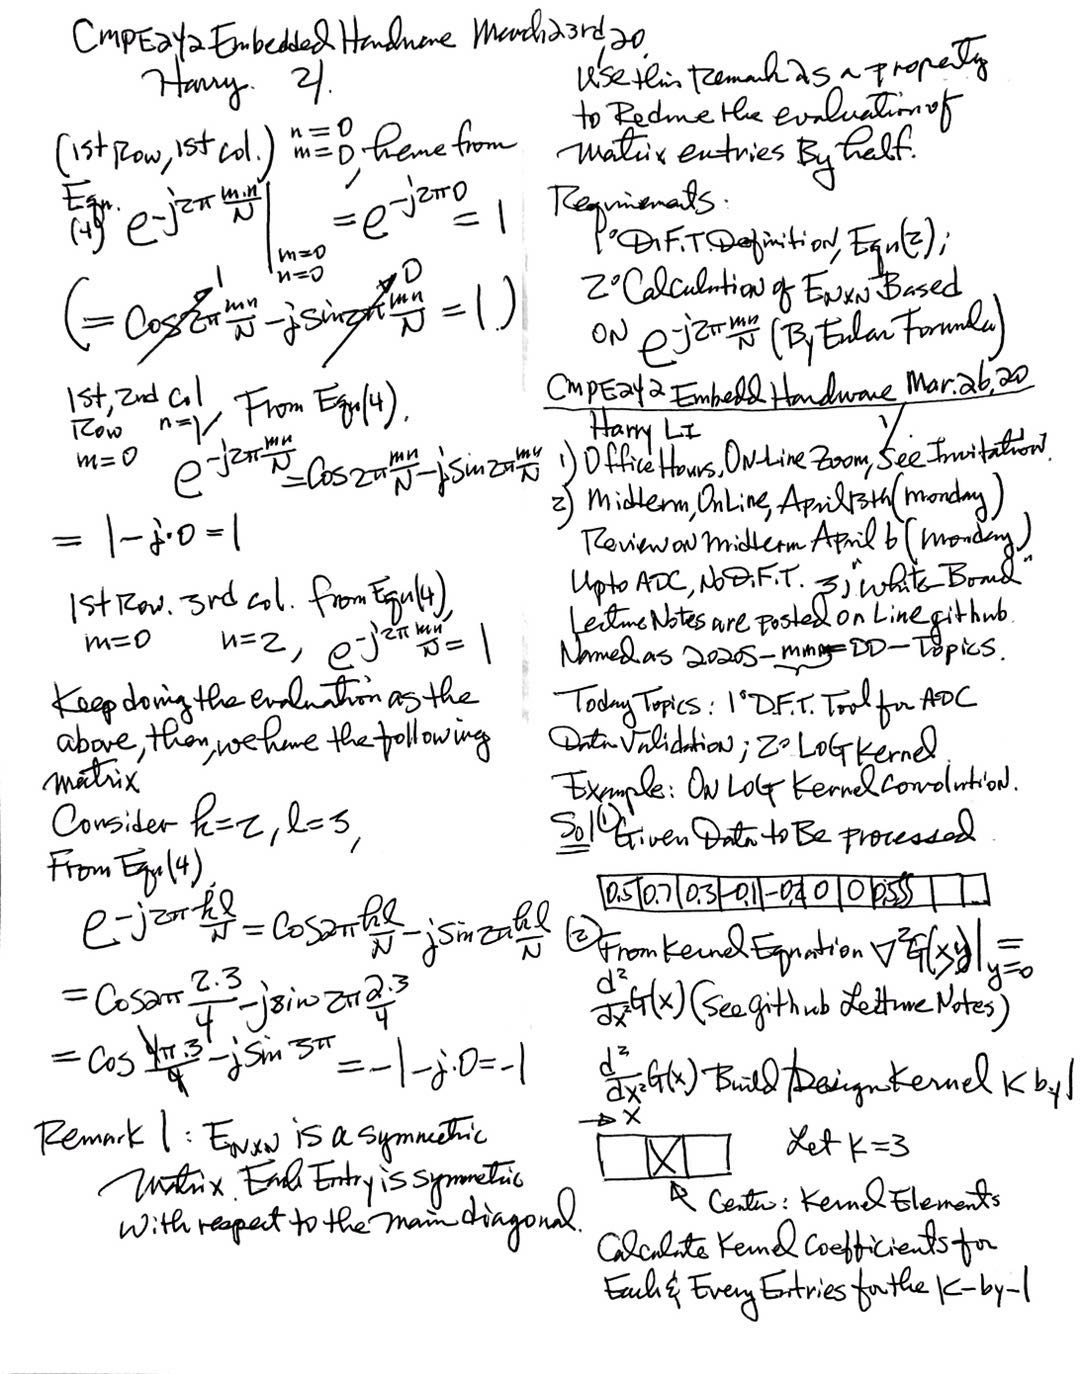 CMPE242 Embedded Hardware March 23rd, 20
Harry. 21.
(1st Row, 1st col.) n=0 m=0, hence from
Eqn. (4) e^{-j2π mn/N} | m=0 n=0 = e^{-j2π0} = 1
(= Cos2π mn/N - j sin2π mn/N = 1.) 1 0
1st, 2nd Col From Eqn(4).
Row n=1,
m=0 e^{-j2π mn/N} = Cos2π mn/N - j Sin2π mn/N
= 1 - j·0 = 1
1st Row. 3rd col. from Eqn(4),
m=0 n=2, e^{-j2π mn/N} = 1
Keep doing the evaluation as the
above, then, we have the following
matrix
Consider k=2, l=3,
From Eqn(4),
e^{-j2π kl/N} = Cos2π kl/N - j Sin2π kl/N
= Cos2π 2·3/4 - j sin 2π 2·3/4
= Cos 4π·3/4 - j Sin 3π = -1 - j·0 = -1
Remark 1: E_{NxN} is a symmetric
Matrix. Each Entry is symmetric
with respect to the main diagonal.
Use this Remark as a property
to Reduce the evaluation of
Matrix entries By half.
Requirements:
1° D.F.T. Definition, Eqn(2);
2° Calculation of E_{NxN} Based
ON e^{-j2π mn/N} (By Euler Formula)
CMPE242 Embedd Hardware Mar. 26, 20
Harry LI
1) Office Hours, ON-Line Zoom, See Invitation.
2) Midterm, OnLine, April 13th (Monday)
Review on Midterm April 6 (Monday)
Up to ADC, No D.F.T. 3) "White Board"
Lecture Notes are posted on Line github.
Named as 2020S-mm-DD-Topics.
Today Topics: 1° D.F.T. Tool for ADC
Data Validation; 2° LOG Kernel.
Example: ON LOG Kernel Convolution.
Sol (1) Given Data to Be processed
0.5 0.7 0.3 -0.1 0 0
(2) From Kernel Equation ∇²G(x,y)|y=0 =
d²/dx² G(x) (See github Lecture Notes)
d²/dx² G(x) Build/Design Kernel K by 1
→ X
X Let K=3
Center: Kernel Elements
Calculate Kernel Coefficients for
Each & Every Entries for the K-by-1